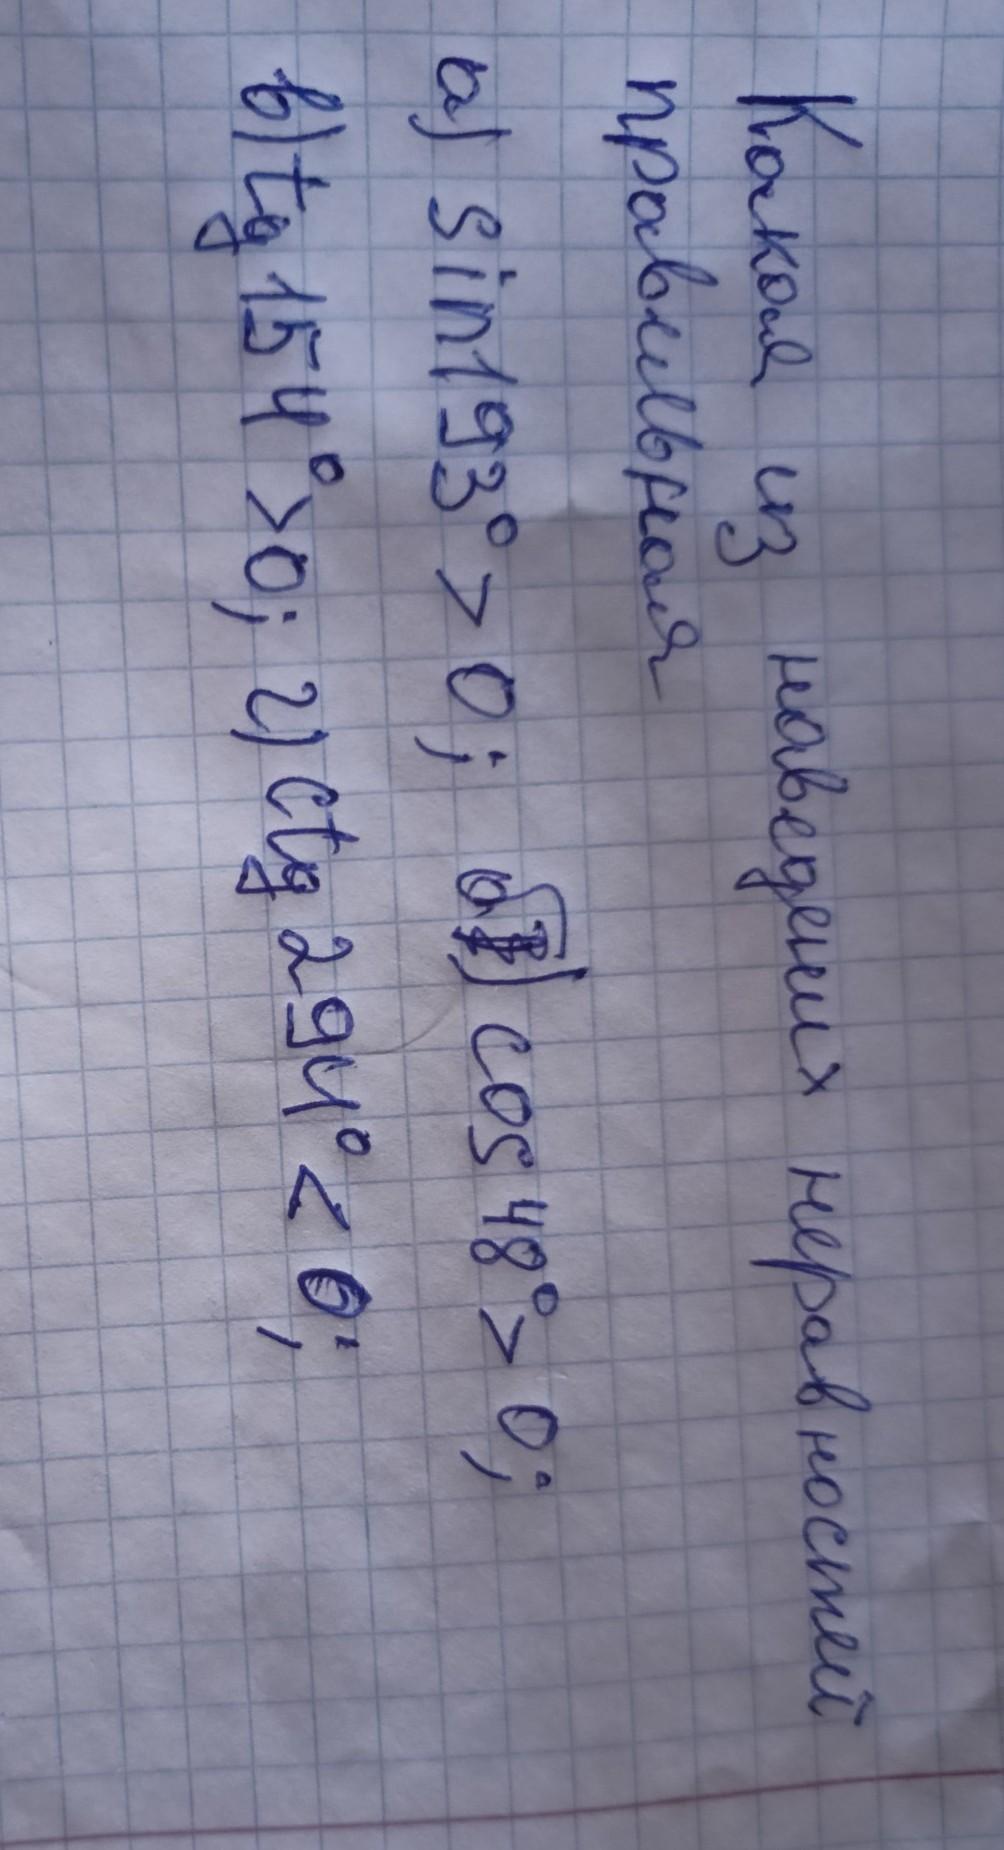 Какая из наведених неравностей
правильная
а) sin193° > 0; б) cos 48° > 0;
в) tg 154° > 0; г) ctg 294° < 0;